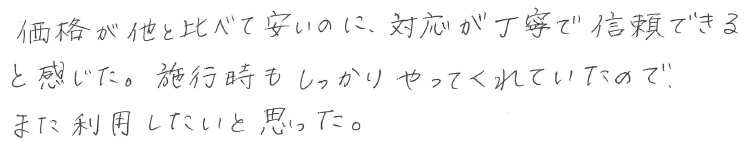 価格が他と比べて安いのに、対応が丁寧で信頼できる
と感じた。施行時もしっかりやってくれていたので、
また利用したいと思った。